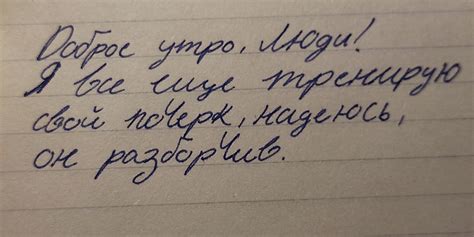 Доброе утро, люди!
Я все еще тренирую
свой почерк, надеюсь,
он разборчив.